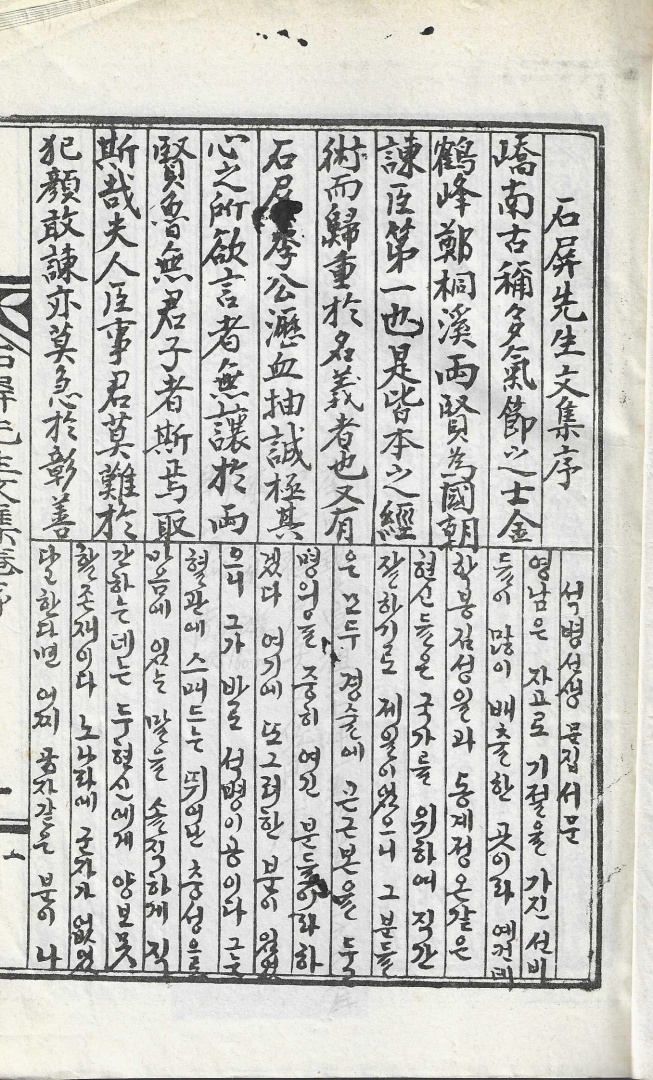 石屛先生文集序
嶠南古稱多氣節之士金
鶴峰鄭桐溪兩賢爲國朝
諫臣第一也是皆本之經
術而歸重於名義者也又有
石屛李公瀝血抽誠極其
心之所欲言者無讓於兩
賢魯無君子者斯焉取
斯哉夫人臣事君莫難於
犯顔敢諫亦莫急於彰善
석병선생 문집서문
영남은 자고로 기절을 가진 선비
들이 많이 배출한 곳이라 예컨데
학봉김성일과 동계정온같은
현신들은 국가를 위하여 직간
잘하기로 제일이었으니 그 분들
은 모두 경술에 근본을 두고
명의를 중히 여긴 분들이라 하
겠다 여기에 또 그러한 분이 있었
으니 그가 바로 석병이공이다 그는
혈관에 스며드는 뛰어난 충성으로
마음에 있는 말을 솔직하게 직
간하는데는 두현신에게 양보못
할존재이다 노나라에 군자가 없었
달한다면 어찌 공자같은 분이 나
石屛先生文集卷 序